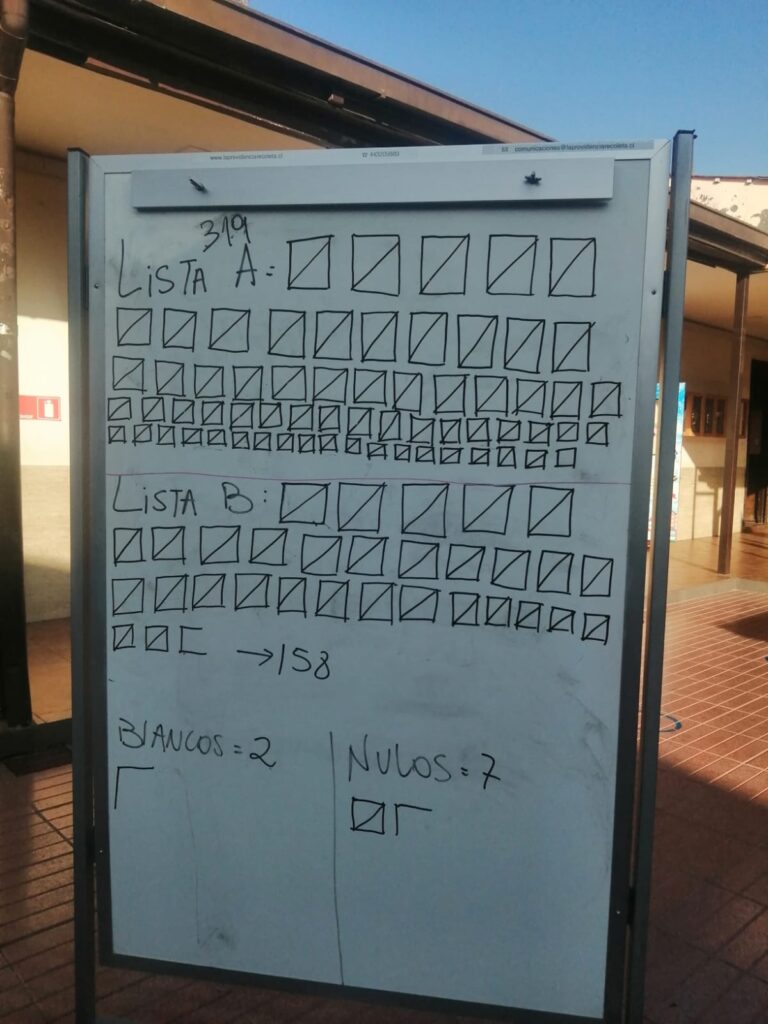 www.laprovidenciarecoleta.cl comunicaciones@laprovidenciarecoleta.cl
319
LISTA A:
LISTA B:
→158
BLANCOS = 2
NULOS = 7